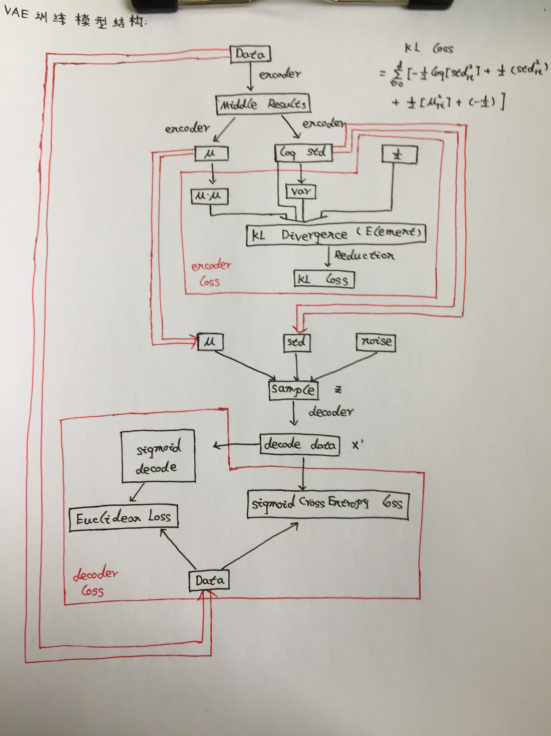 VAE 训练模型结构.
KL Loss
= Σ_{t=0}^{d} [-½ log[std²_{it}] + ½ (std²_{it})
+ ½ [μ²_{it}] + (-½)]
Data
encoder
Middle Results
encoder encoder
μ Log std ½
μ·μ var
KL Divergence (Element)
Reduction
encoder
Loss
KL Loss
μ std noise
sample z
decoder
decode data x'
sigmoid
decode
Euclidean Loss
sigmoid Cross Entropy Loss
decoder
Loss
Data